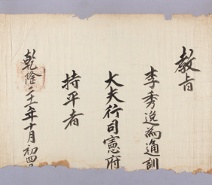 敎旨
李秀逸爲通訓
大夫行司憲府
持平者
乾隆二十一年十月初四